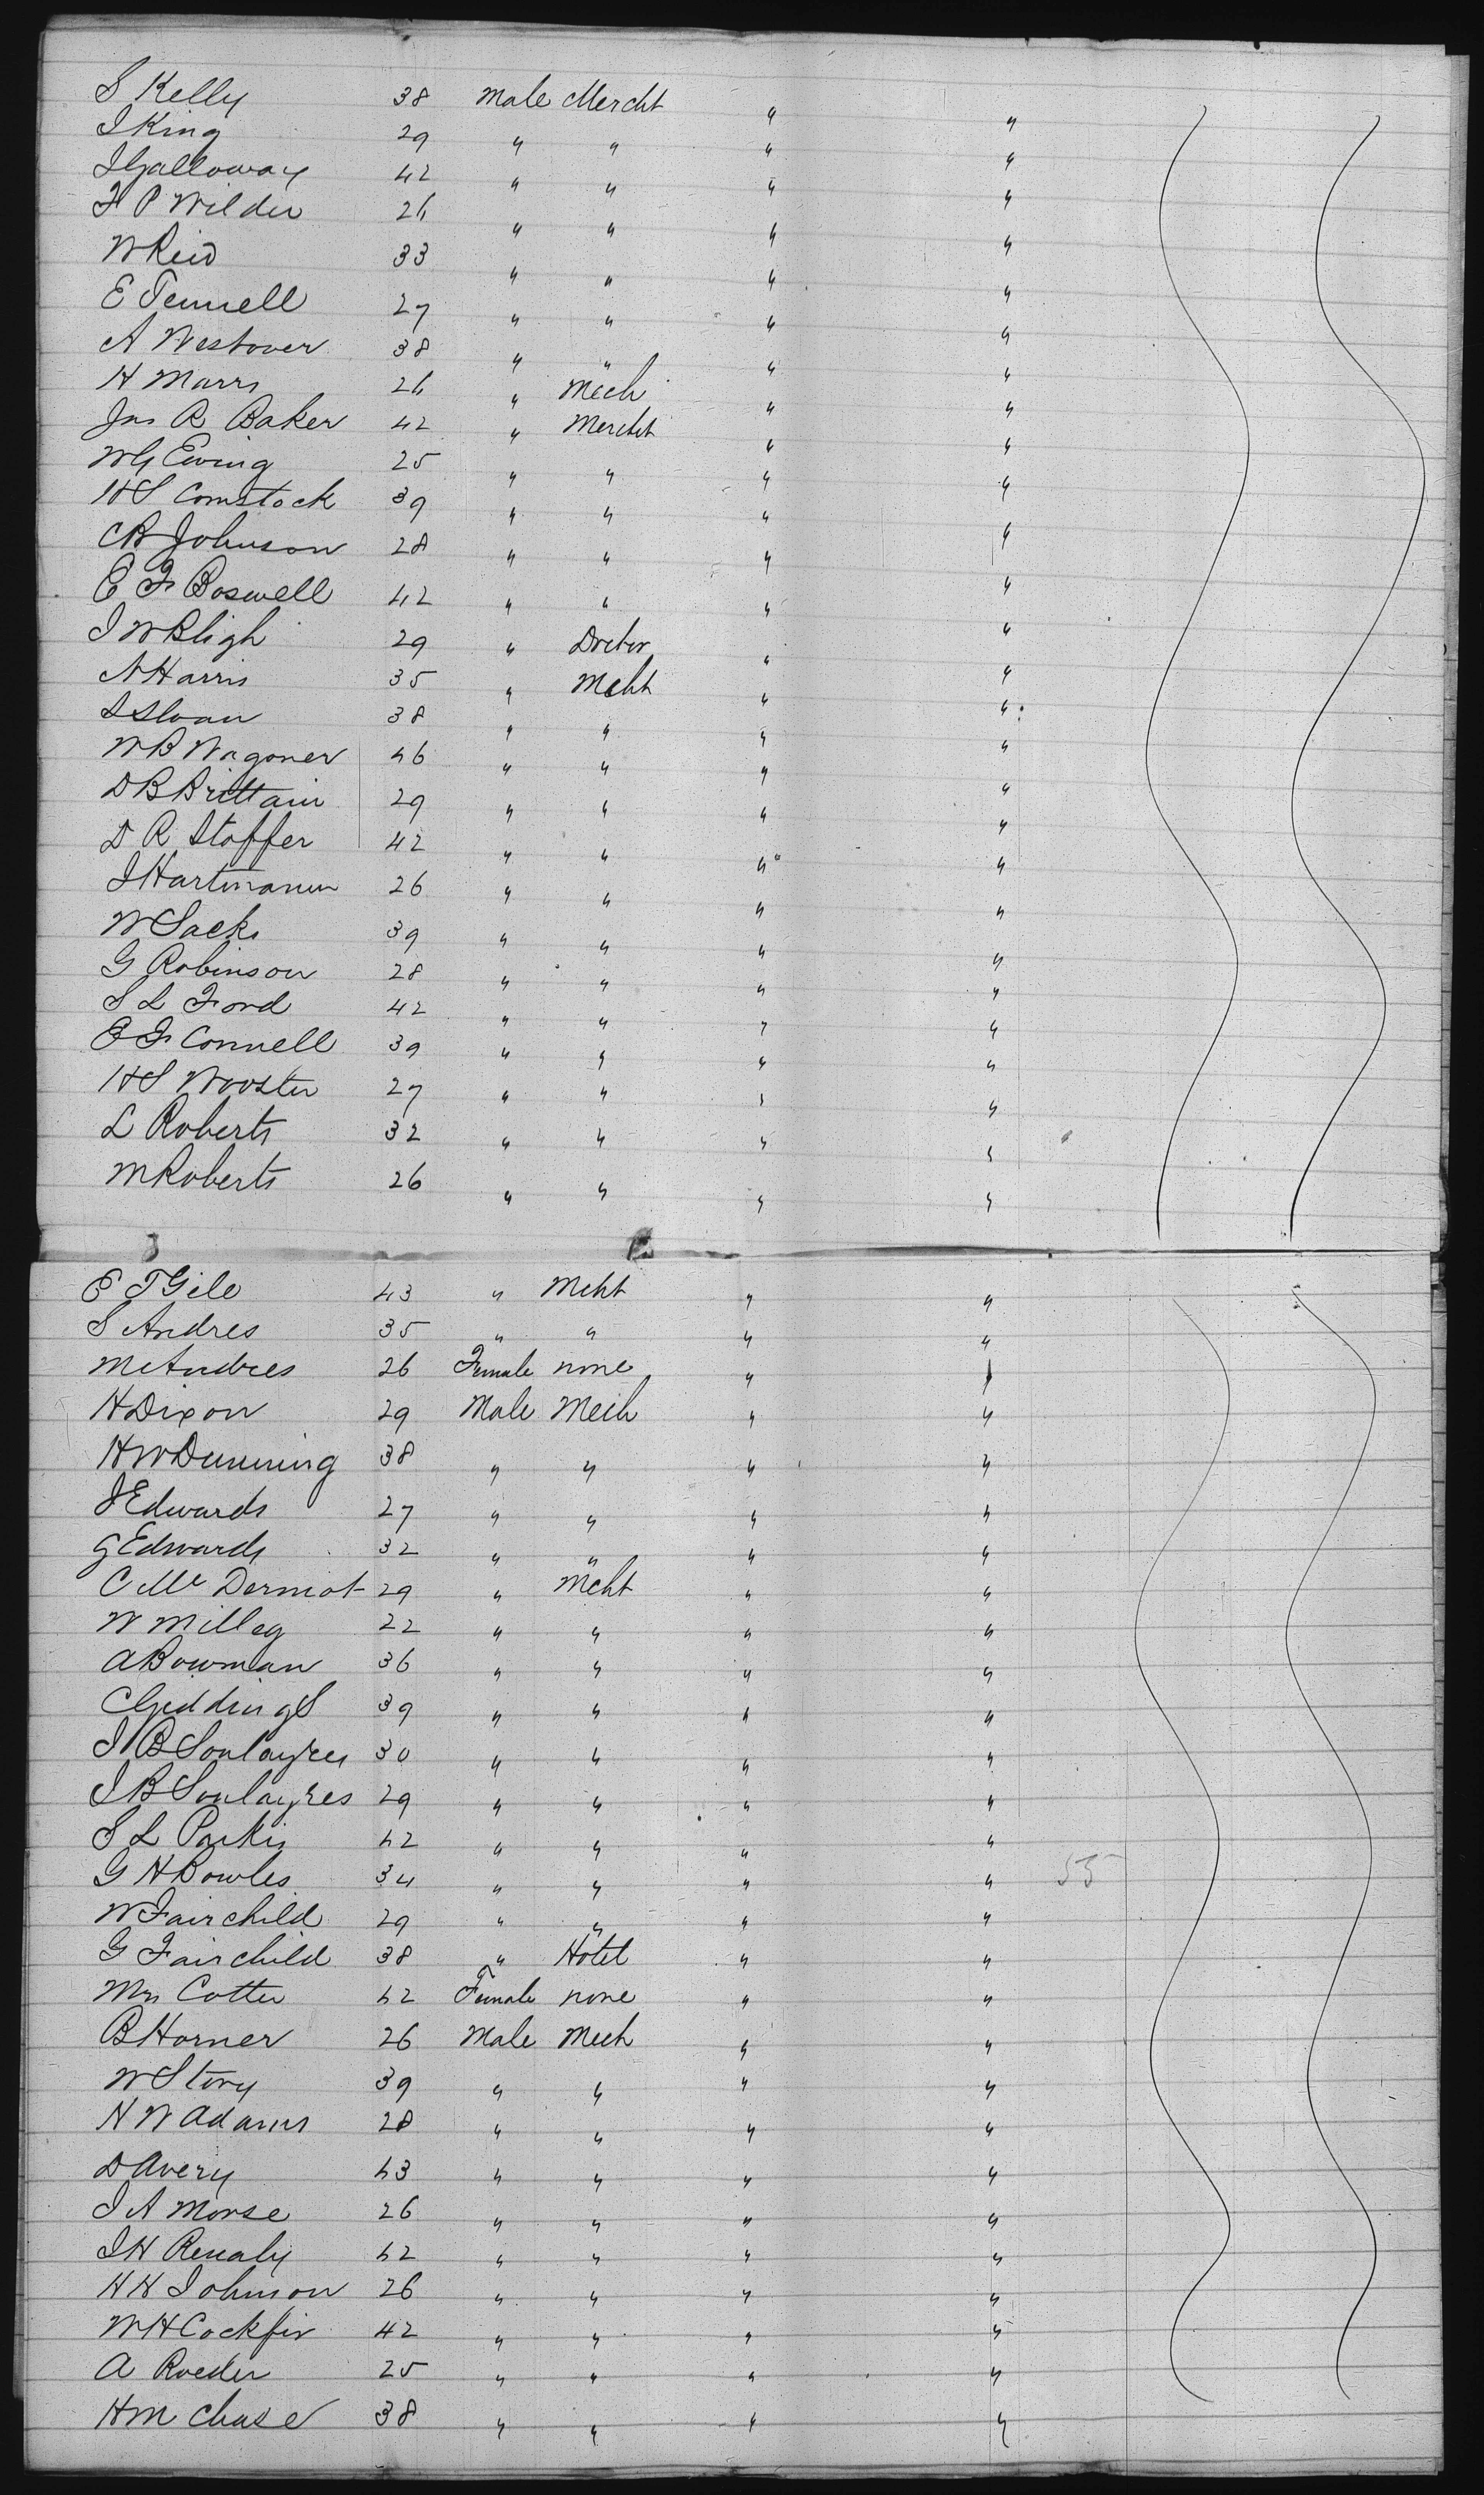 S Kelly 38 Male Mercht " "
J King 29 " " " "
J Galloway 42 " " " "
F P Wilder 26 " " " "
W Reid 33 " " " "
E Tennell 27 " " " "
A Westover 38 " " " "
H Marrs 26 " Mech " "
Jas R Baker 42 " Mercht " "
W G Ewing 25 " " " "
H S Comstock 39 " " " "
C B Johnson 28 " " " "
E F Boswell 42 " " " "
J W Bligh 29 " Doctor " "
A Harris 35 " Mcht " "
S Sloan 38 " " " "
W B Wagoner 46 " " " "
D B Brittain 29 " " " "
D R Stoffer 42 " " " "
J Hartmann 26 " " " "
W Sacks 39 " " " "
G Robinson 28 " " " "
S L Ford 42 " " " "
E F Connell 39 " " " "
H S Wooster 27 " " " "
L Roberts 32 " " " "
M Roberts 26 " " " "
E T Gile 43 " Mcht " "
S Andres 35 " " " "
M Andres 26 Female none " "
H Dixon 29 Male Mech " "
H W Dunning 38 " " " "
J Edwards 27 " " " "
G Edwards 32 " " " "
C Mc Dermot 29 " Mcht " "
W Milley 22 " " " "
A Bowman 36 " " " "
C Giddings 39 " " " "
J B Soulayres 30 " " " "
J B Soulayres 29 " " " "
S L Parkis 42 " " " "
G H Bowles 34 " " " " 55
W Fairchild 29 " " " "
G Fairchild 38 " Hotel " "
Mrs Cotter 42 Female none " "
B Horner 26 Male Mech " "
W Story 39 " " " "
H W Adams 28 " " " "
D Avery 43 " " " "
J A Morse 26 " " " "
J H 42 " " " "
H H Johnson 26 " " " "
W H 42 " " " "
A Roeder 25 " " " "
H M Chase 38 " " " "